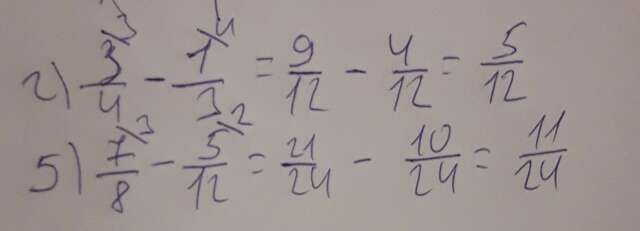 2) 3/4 - 1/3 = 9/12 - 4/12 = 5/12
5) 7/8 - 5/12 = 21/24 - 10/24 = 11/24